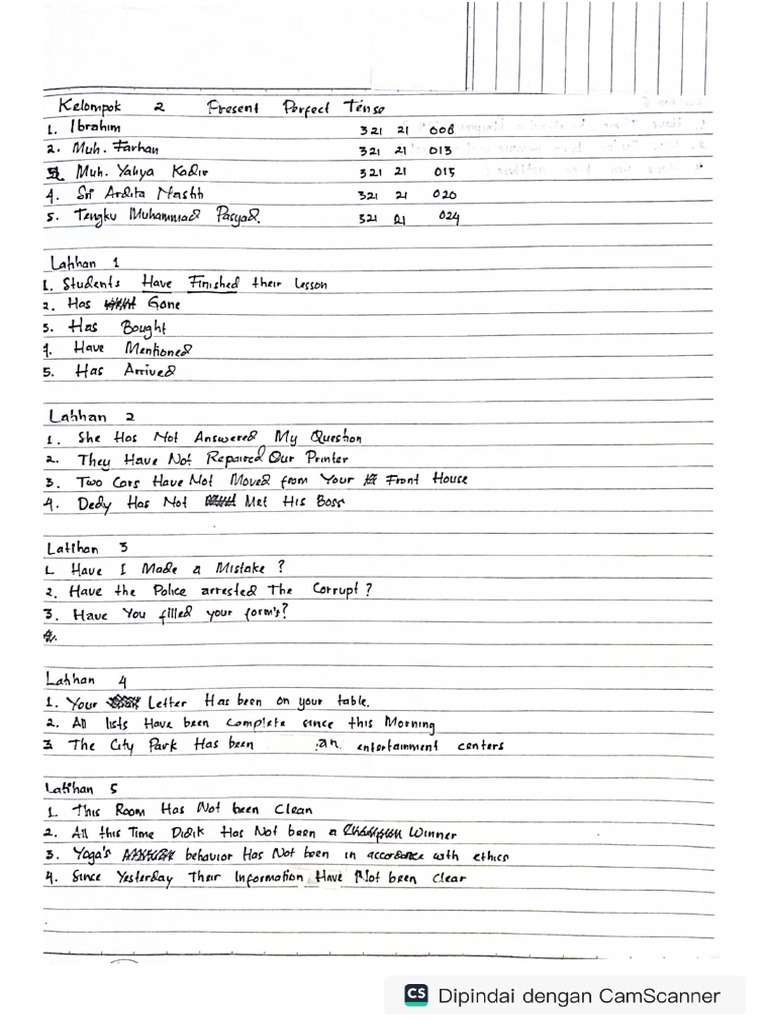 Kelompok 2 Present Perfect Tense
1. Ibrahim 321 21 008
2. Muh. Farhan 321 21 013
3. Muh. Yahya Kadir 321 21 015
4. Sri Ardita 321 21 020
5. Tengku Muhammad Pasyad. 321 21 024
Latihan 1
1. Students Have Finished their Lesson
2. Has Gone
3. Has Bought
4. Have Mentioned
5. Has Arrived
Latihan 2
1. She Has Not Answered My Question
2. They Have Not Repaired Our Printer
3. Two Cars Have Not Moved from Your Front House
4. Dedy Has Not Met His Boss
Latihan 3
1. Have I Made a Mistake ?
2. Have the Police arrested The Corrupt ?
3. Have You filled your form's?
Latihan 4
1. Your Letter Has been on your table.
2. All lists Have been Complete since this Morning
3. The City Park Has been an entertainment centers
Latihan 5
1. This Room Has Not been Clean
2. All this Time Didik Has Not been a Champion Winner
3. Yoga's behavior Has Not been in accordance with ethics
4. Since Yesterday Their Information Have Not been Clear
CS Dipindai dengan CamScanner